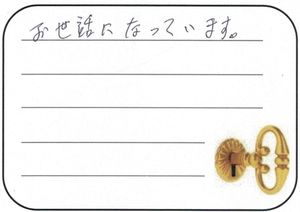 お世話になっています。